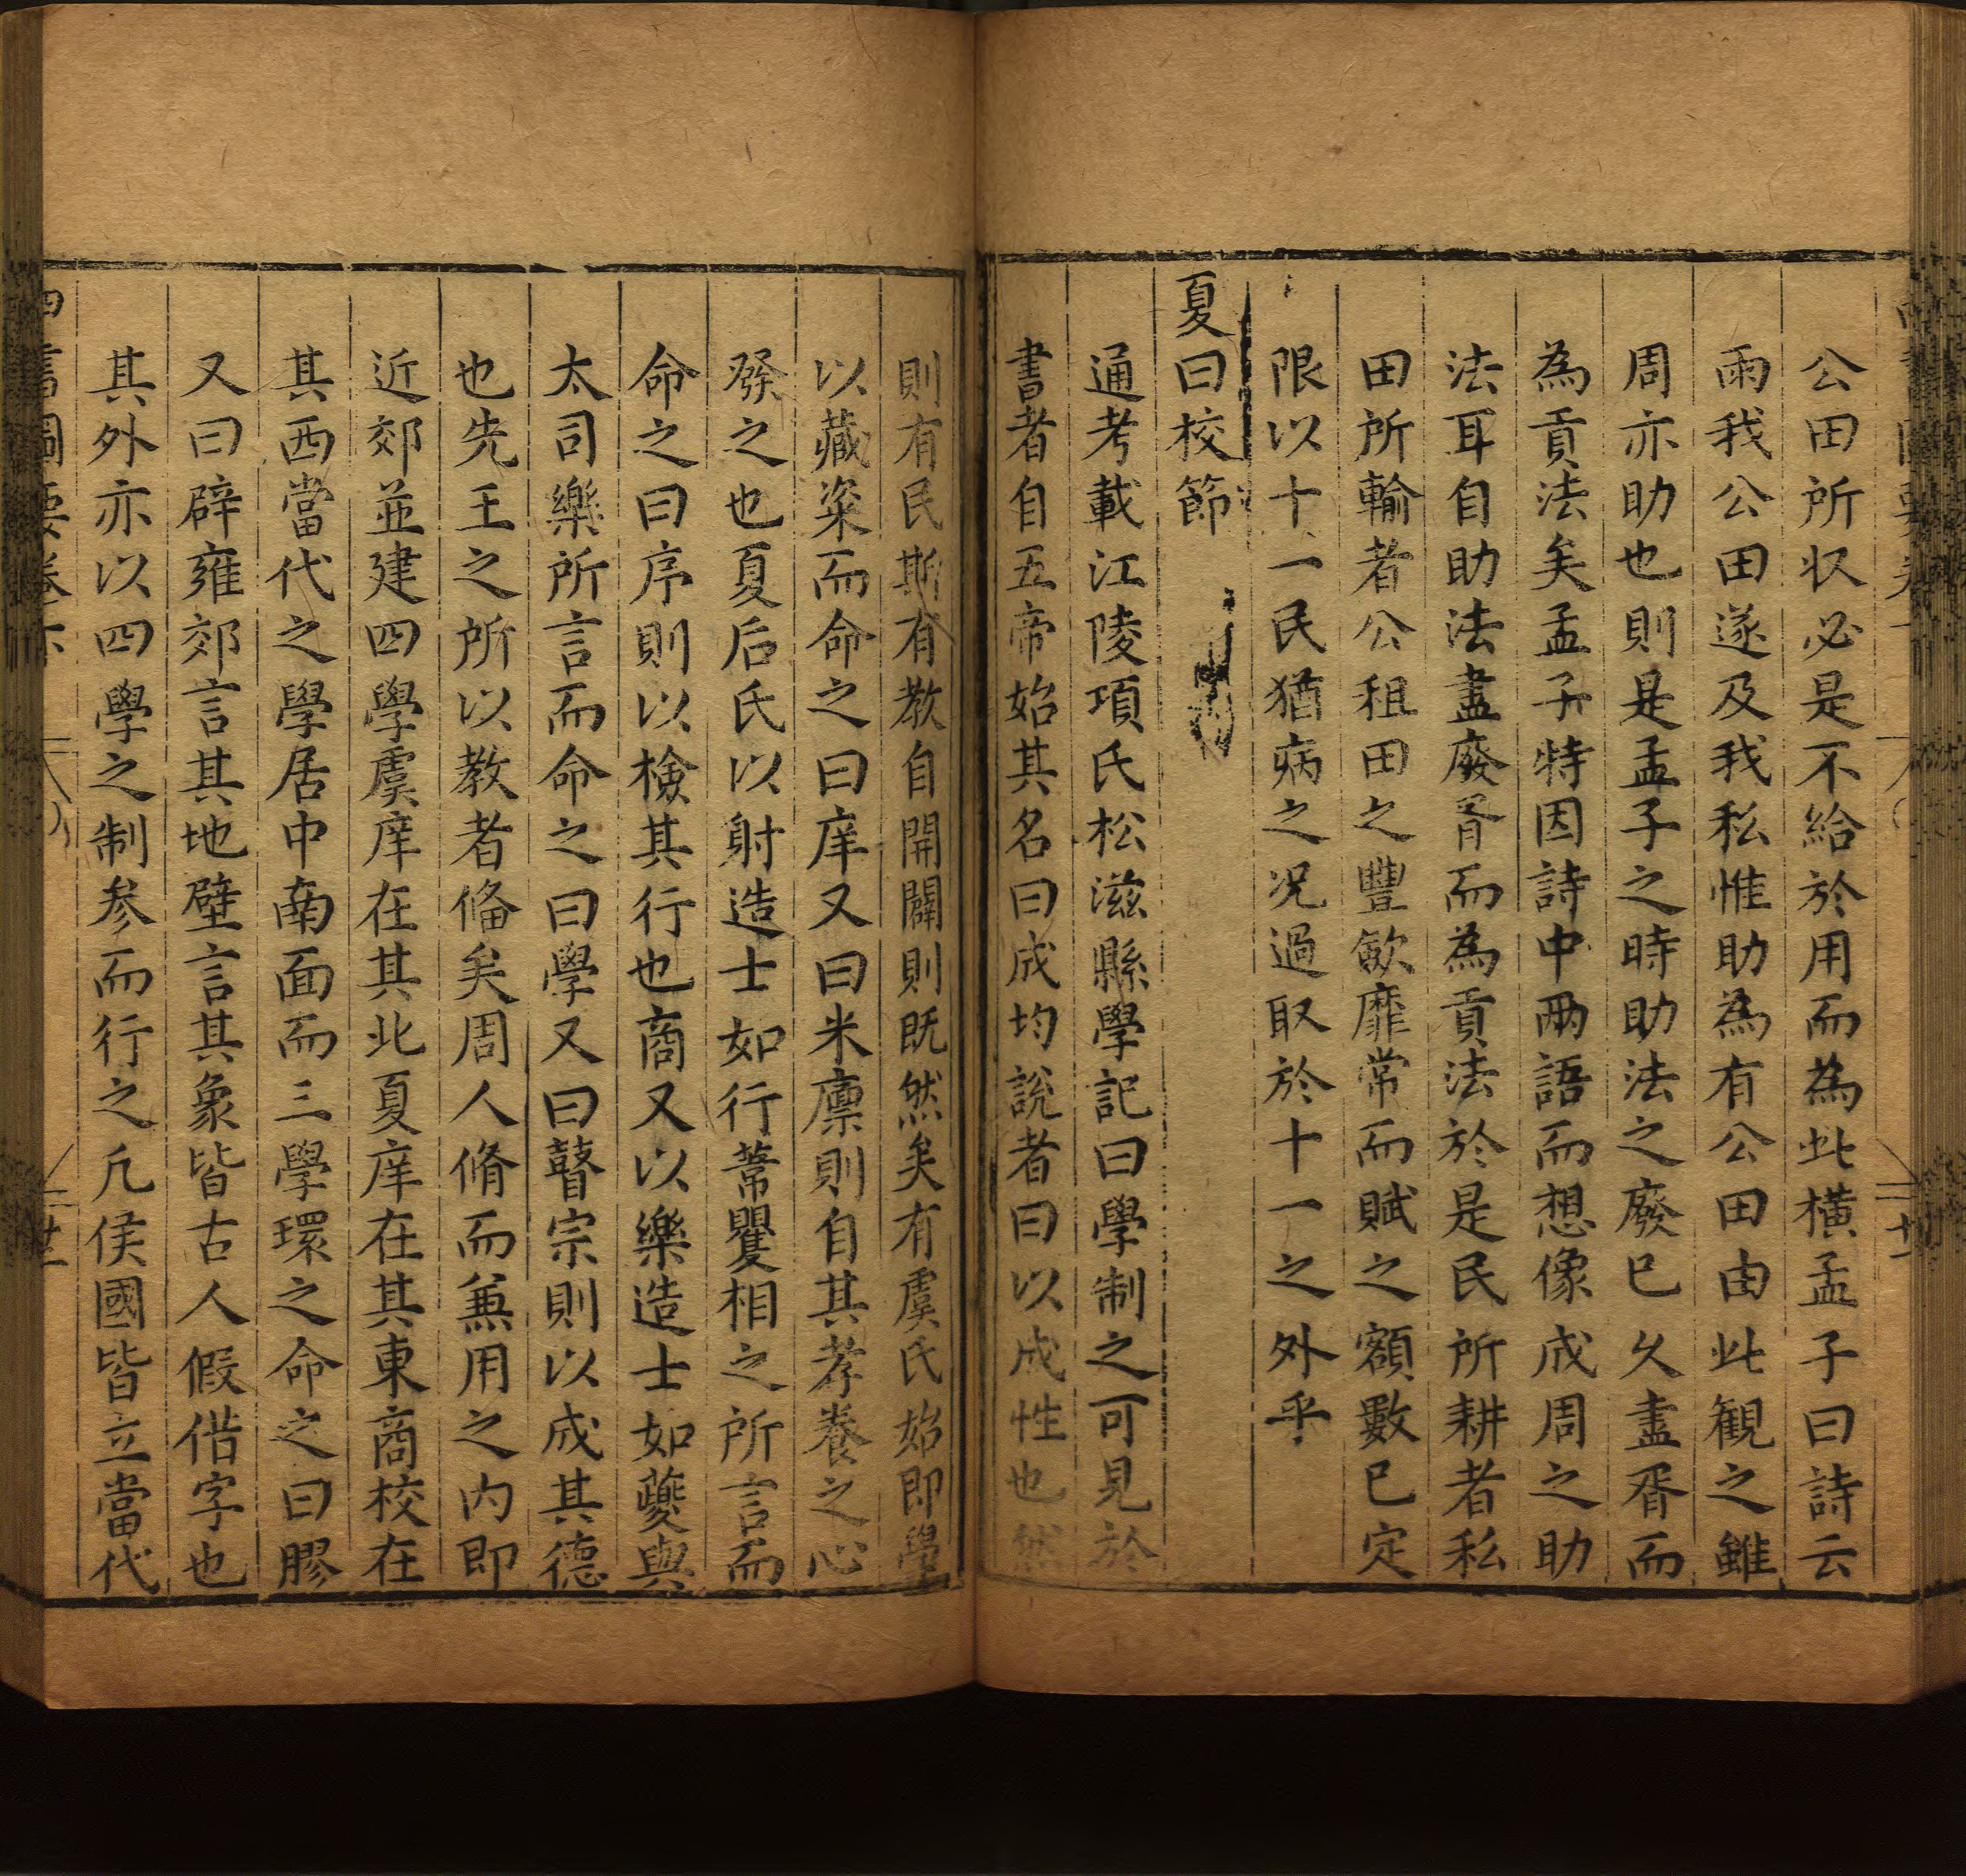 公田所收必是不給於用而為此橫孟子曰詩云
雨我公田遂及我私惟助為有公田由此観之雖
周亦助也則是孟子之時助法之廢已久盡胥而
為貢法矣孟子特因詩中兩語而想像成周之助
法耳自助法盡廢胥而為貢法於是民所耕者私
田所輸者公租田之豐歉靡常而賦之額數已定
限以十一民猶病之况過取於十一之外乎
夏曰校節
通考載江陵項氏松滋縣學記曰學制之可見於
書者自五帝始其名曰成均說者曰以成性也然
則有民斯有教自開闢則既然矣有虞氏始即學
以藏粢而命之曰庠又曰米廩則自其孝養之心
發之也夏后氏以射造士如行葦矍相之所言而
命之曰序則以檢其行也商又以樂造士如夔與
太司樂所言而命之曰學又曰瞽宗則以成其德
也先王之所以教者備矣周人脩而兼用之内即
近郊並建四學虞庠在其北夏庠在其東商校在
其西當代之學居中南面而三學環之命之曰膠
又曰辟雍郊言其地璧言其象皆古人假借字也
其外亦以四學之制参而行之凡侯國皆立當代
四書圖要卷下